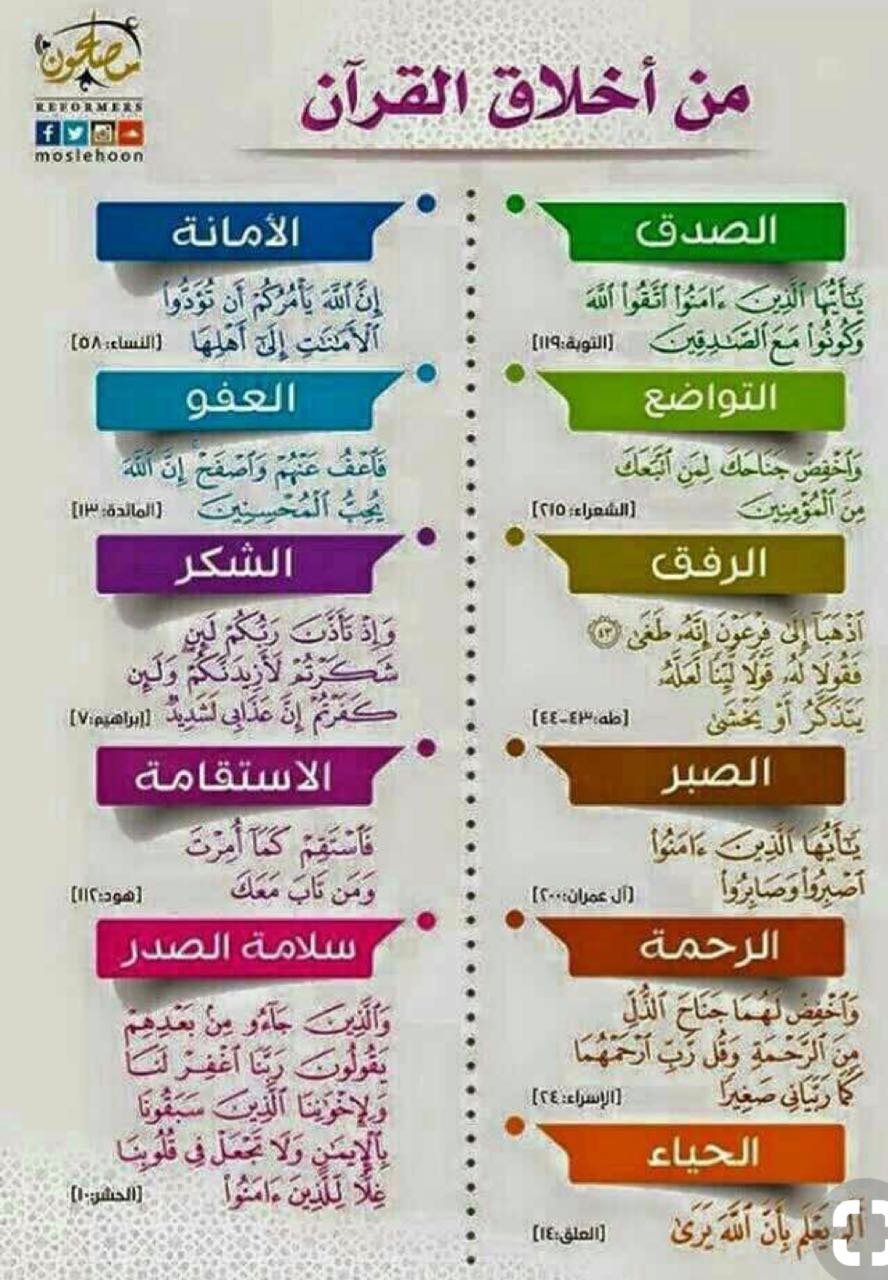 مصلحون
REFORMERS
moslehoon
من أخلاق القرآن
الصدق
يَٰٓأَيُّهَا ٱلَّذِينَ ءَامَنُوا۟ ٱتَّقُوا۟ ٱللَّهَ
وَكُونُوا۟ مَعَ ٱلصَّٰدِقِينَ [التوبة:١١٩]
التواضع
وَٱخْفِضْ جَنَاحَكَ لِمَنِ ٱتَّبَعَكَ
مِنَ ٱلْمُؤْمِنِينَ [الشعراء:٢١٥]
الرفق
ٱذْهَبَآ إِلَىٰ فِرْعَوْنَ إِنَّهُۥ طَغَىٰ ٤٣
فَقُولَا لَهُۥ قَوْلًا لَّيِّنًا لَّعَلَّهُۥ
يَتَذَكَّرُ أَوْ يَخْشَىٰ [طه:٤٣-٤٤]
الصبر
يَٰٓأَيُّهَا ٱلَّذِينَ ءَامَنُوا۟
ٱصْبِرُوا۟ وَصَابِرُوا۟ [آل عمران:٢٠٠]
الرحمة
وَٱخْفِضْ لَهُمَا جَنَاحَ ٱلذُّلِّ
مِنَ ٱلرَّحْمَةِ وَقُل رَّبِّ ٱرْحَمْهُمَا
كَمَا رَبَّيَانِى صَغِيرًا [الإسراء:٢٤]
الحياء
أَلَمْ يَعْلَم بِأَنَّ ٱللَّهَ يَرَىٰ [العلق:١٤]
الأمانة
إِنَّ ٱللَّهَ يَأْمُرُكُمْ أَن تُؤَدُّوا۟
ٱلْأَمَٰنَٰتِ إِلَىٰٓ أَهْلِهَا [النساء:٥٨]
العفو
فَٱعْفُ عَنْهُمْ وَٱصْفَحْ ۚ إِنَّ ٱللَّهَ
يُحِبُّ ٱلْمُحْسِنِينَ [المائدة:١٣]
الشكر
وَإِذْ تَأَذَّنَ رَبُّكُمْ لَئِن
شَكَرْتُمْ لَأَزِيدَنَّكُمْ وَلَئِن
كَفَرْتُمْ إِنَّ عَذَابِى لَشَدِيدٌ [إبراهيم:٧]
الاستقامة
فَٱسْتَقِمْ كَمَآ أُمِرْتَ
وَمَن تَابَ مَعَكَ [هود:١١٢]
سلامة الصدر
وَٱلَّذِينَ جَآءُو مِنۢ بَعْدِهِمْ
يَقُولُونَ رَبَّنَا ٱغْفِرْ لَنَا
وَلِإِخْوَٰنِنَا ٱلَّذِينَ سَبَقُونَا
بِٱلْإِيمَٰنِ وَلَا تَجْعَلْ فِى قُلُوبِنَا
غِلًّا لِّلَّذِينَ ءَامَنُوا۟ [الحشر:١٠]